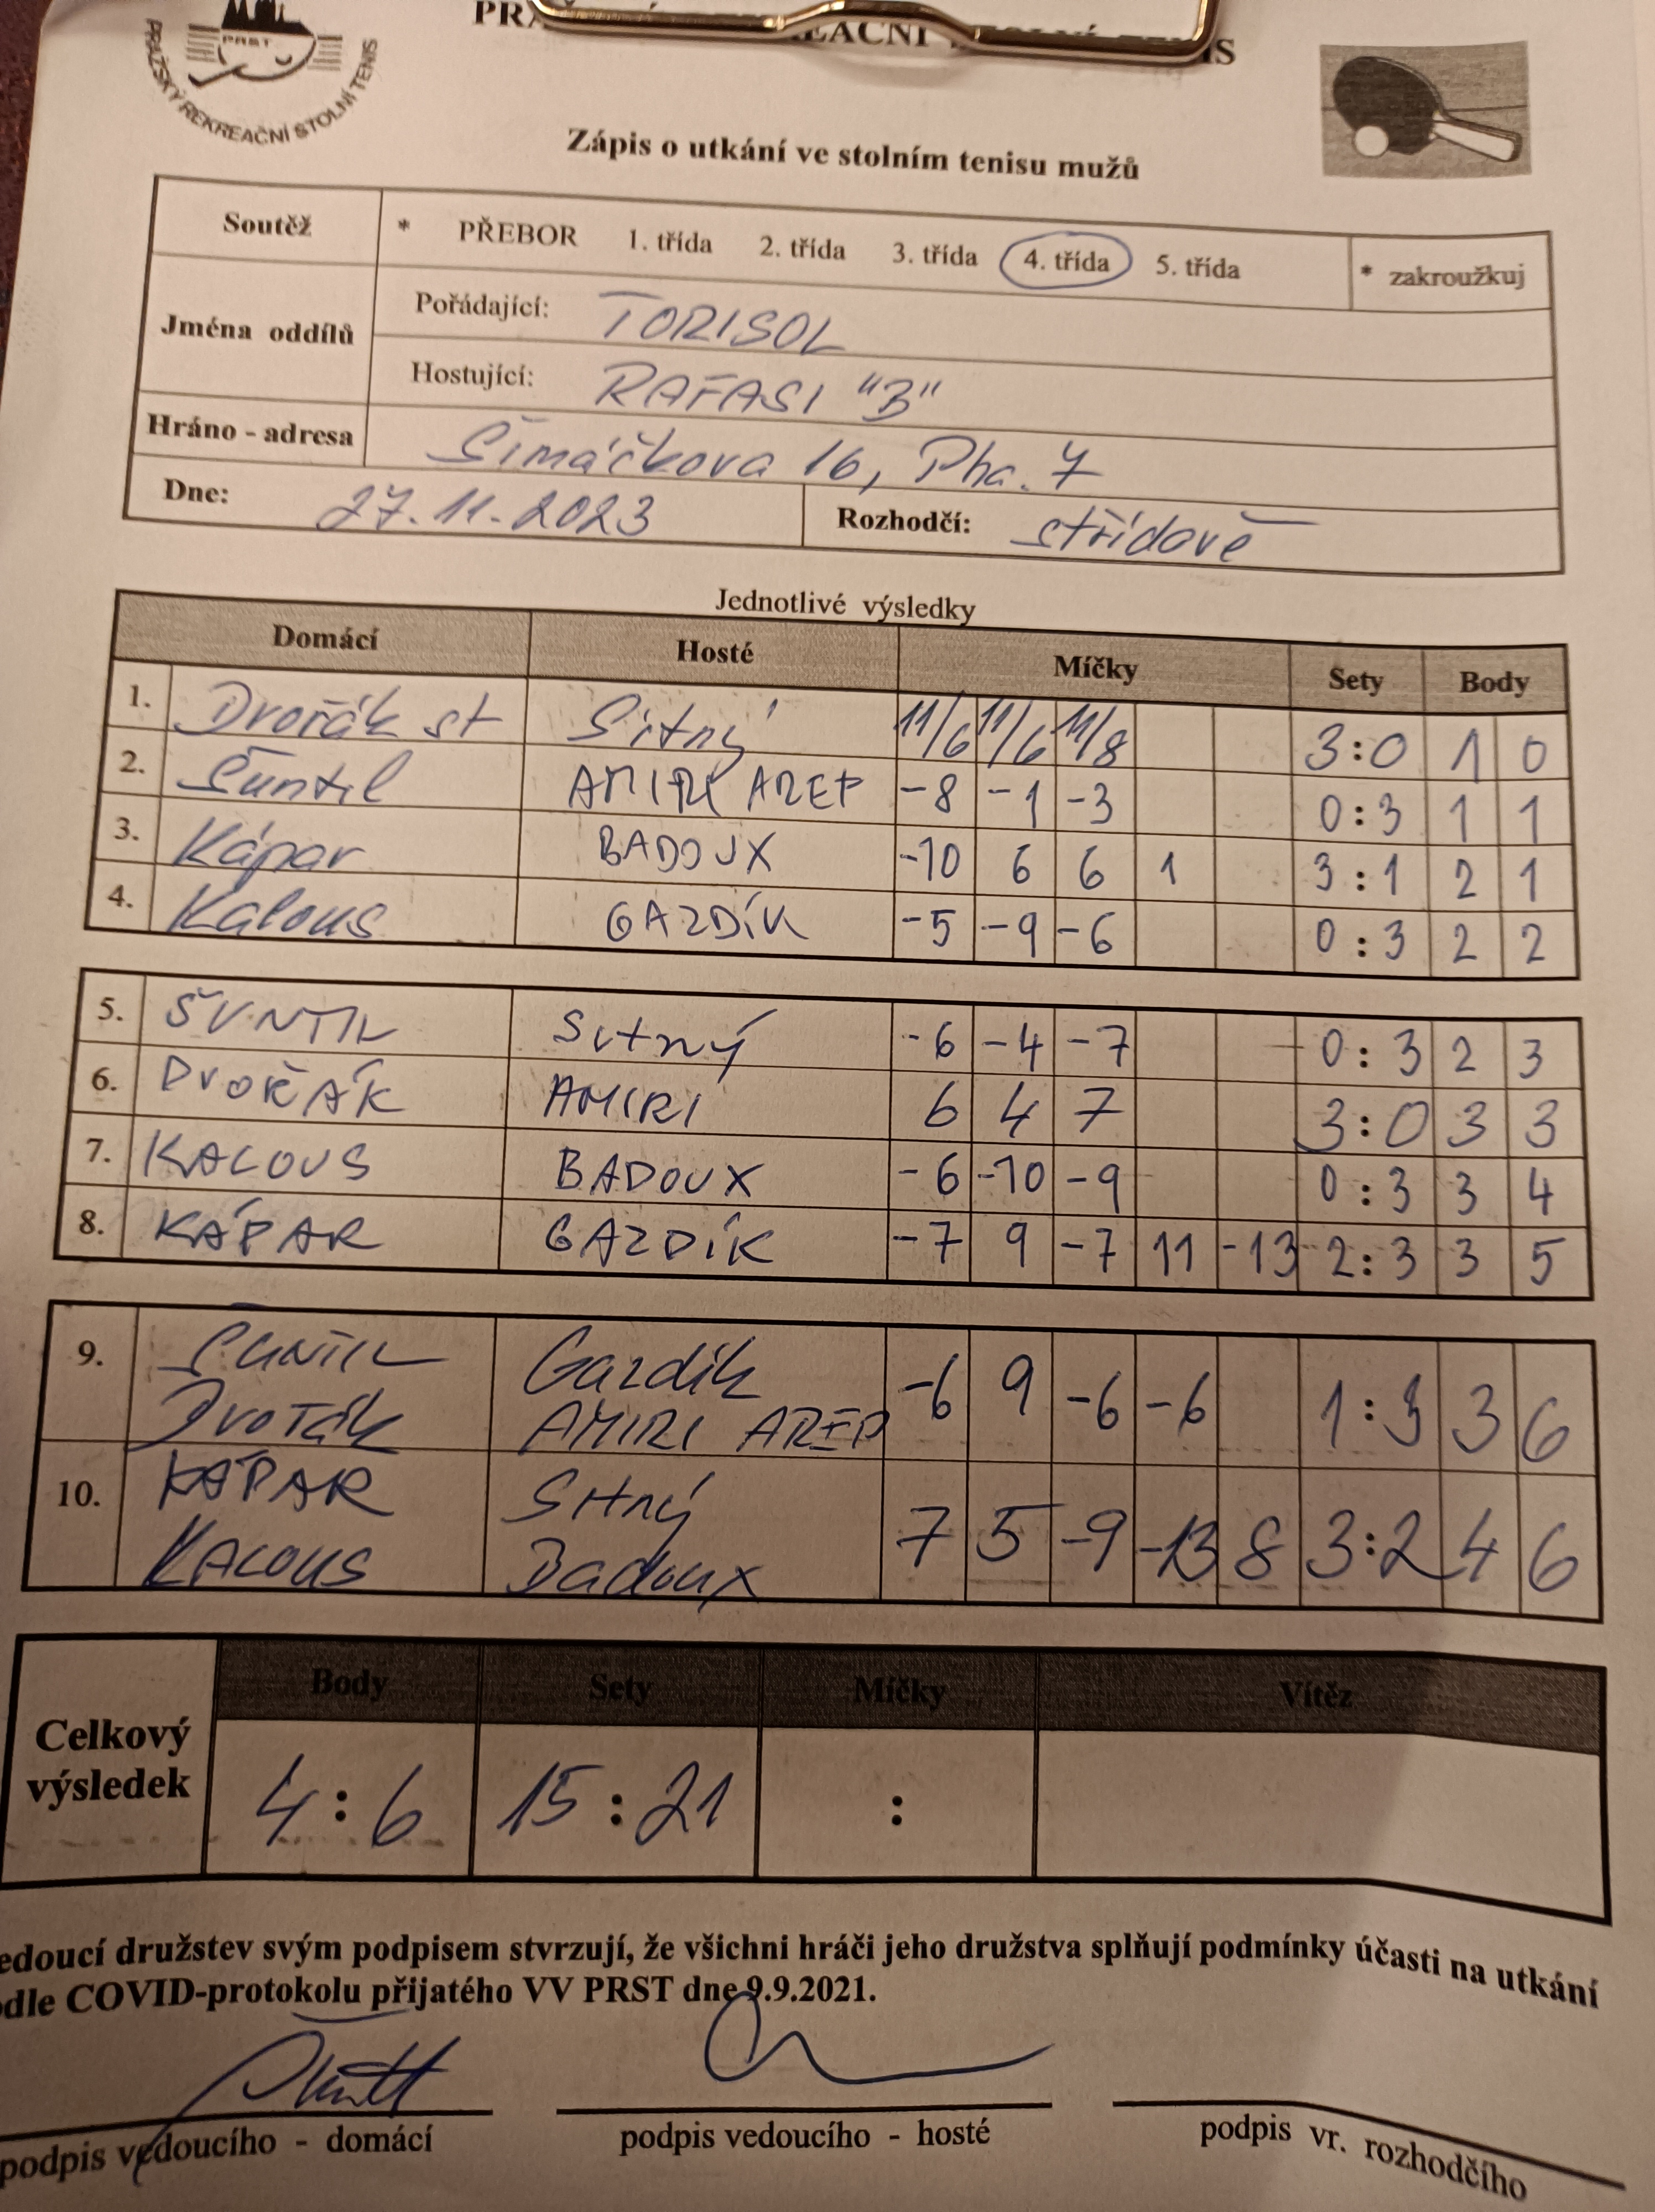 PRST
PRAŽSKÝ REKREAČNÍ STOLNÍ TENIS
Zápis o utkání ve stolním tenisu mužů
Soutěž * PŘEBOR 1. třída 2. třída 3. třída 4. třída 5. třída * zakroužkuj
Jména oddílů
Pořádající: TORISOL
Hostující: RAFASI "B"
Hráno - adresa Šimáčkova 16, Pha. 7
Dne: 27.11.2023 Rozhodčí: střídavě
Jednotlivé výsledky
Domácí Hosté Míčky Sety Body
1. Dvořák st Sitný 11/6 11/6 11/8 3:0 1 0
2. Šuntil AMIRI AREP -8 -1 -3 0:3 1 1
3. Kápar BADOUX -10 6 6 1 3:1 2 1
4. Kalous GAZDÍK -5 -9 -6 0:3 2 2
5. ŠUNTIL Sitný -6 -4 -7 0:3 2 3
6. DVOŘÁK AMIRI 6 4 7 3:0 3 3
7. KALOUS BADOUX -6 -10 -9 0:3 3 4
8. KÁPAR GAZDÍK -7 9 -7 11 -13 2:3 3 5
9. ŠUNTIL Gazdík -6 9 -6 -6 1:3 3 6
Dvořák AMIRI AREP
10. KÁPAR Sitný 7 5 -9 -13 8 3:2 4 6
KALOUS Badoux
Celkový výsledek
Body Sety Míčky Vítěz
4:6 15:21 :
edoucí družstev svým podpisem stvrzují, že všichni hráči jeho družstva splňují podmínky účasti na utkání
dle COVID-protokolu přijatého VV PRST dne 9.9.2021.
podpis vedoucího - domácí podpis vedoucího - hosté podpis vr. rozhodčího